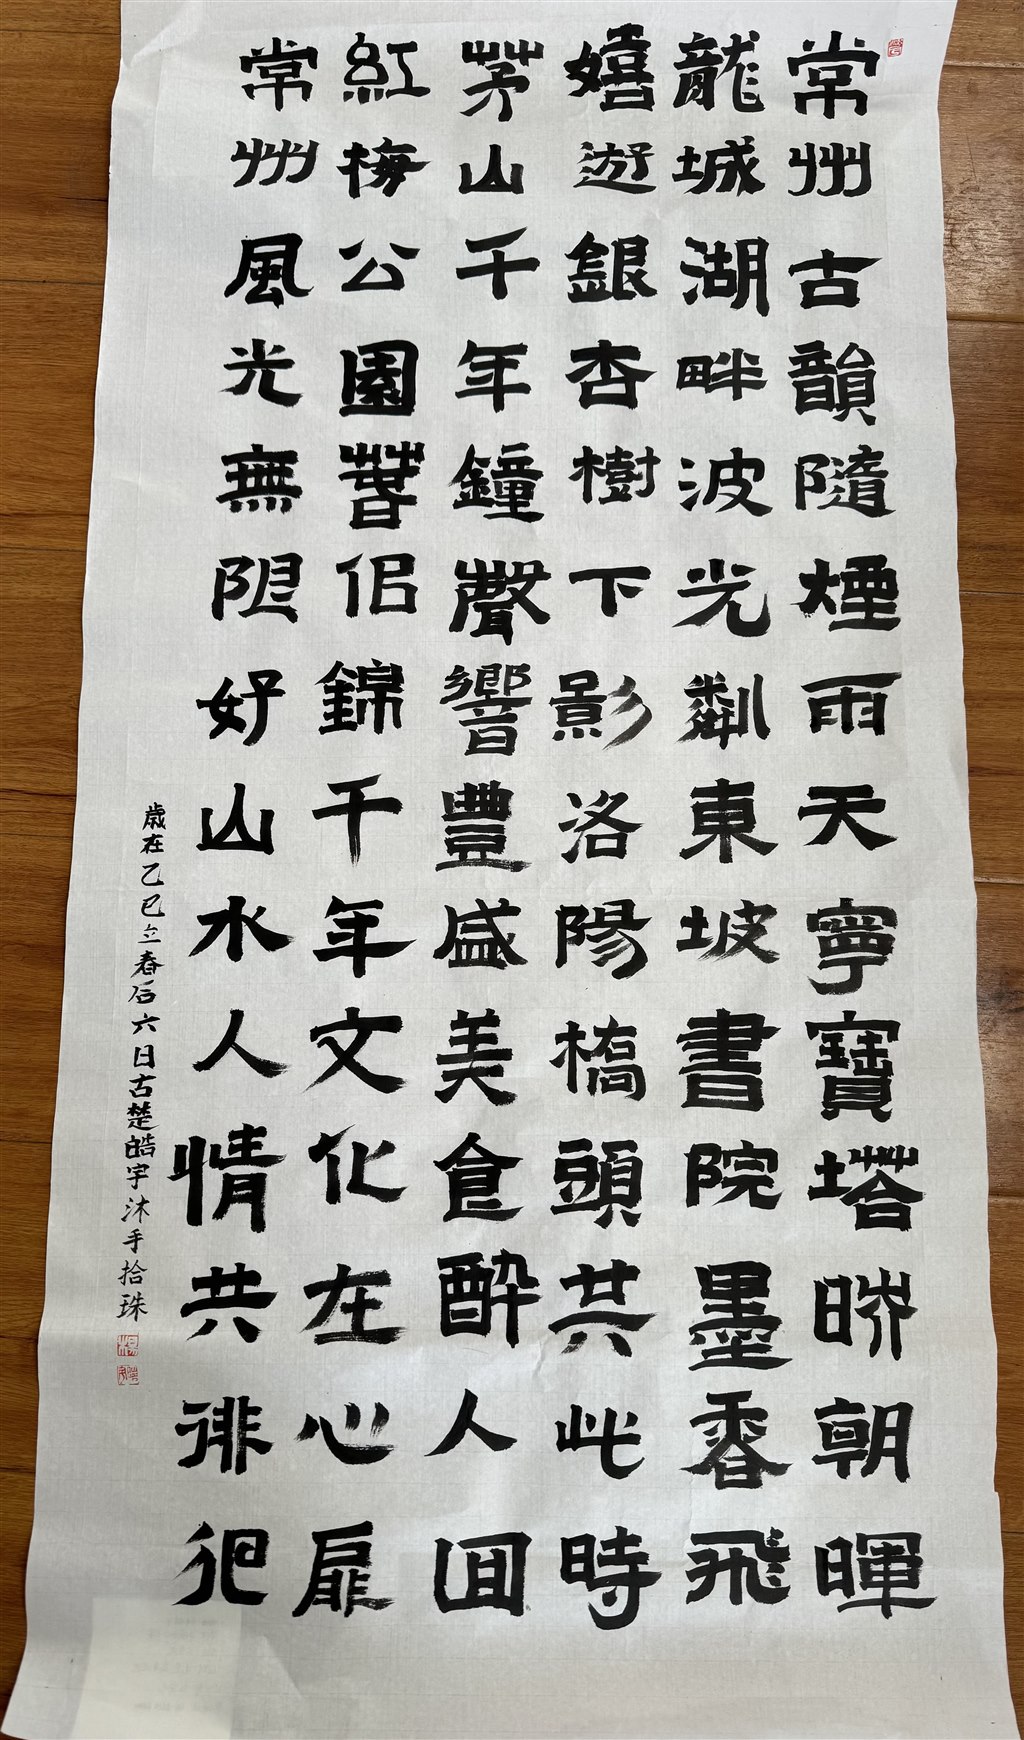 常州古韻隨煙雨天寧寶塔映朝暉
龍城湖畔波光粼東坡書院墨香飛
嬉遊銀杏樹下影洛陽橋頭共此時
茅山千年鐘聲響豐盛美食醉人囬
紅梅公園萅佀錦千年文化在心扉
常州風光無限好山水人情共徘徊
歲在乙巳立春后六日古楚皓宇沐手拾珠